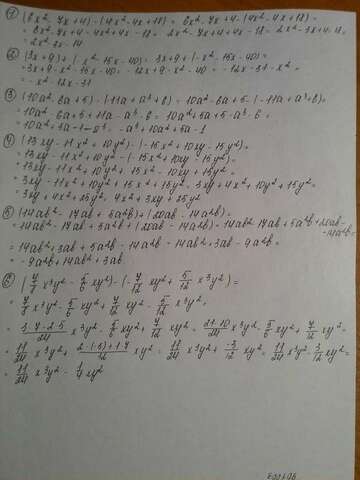 1) (6x²- 7x+4)-(4x²-4x+18)= 6x²-7x+4-(4x²-4x+18)=
= 6x²-7x+4-4x²+4x-18= 2x²-7x+4+4x-18= 2x²-3x+4-18=
= 2x²-3x-14
2) (3x+9)+(-x²-15x-40)= 3x+9+(-x²-15x-40)=
= 3x+9-x²-15x-40= -12x+9-x²-40= -12x-31-x²=
= -x²-12x-31
3) (10a²-6a+5)-(-11a+a³+6)= 10a²-6a+5-(-11a+a³+6)=
= 10a²-6a+5+11a-a³-6= 10a²+5a+5-a³-6=
= 10a²+5a-1-a³= -a³+10a²+5a-1
4) (13xy-11x²+10y²)-(-15x²+10xy-15y²)=
= 13xy-11x²+10y²-(-15x²+10xy-15y²)=
= 13xy-11x²+10y²+15x²-10xy+15y²=
= 3xy-11x²+10y²+15x²+15y²= 3xy+4x²+10y²+15y²=
= 3xy+4x²+25y²= 4x²+3xy+25y²
5) (14ab²-17ab+5a²b)+(20ab-14a²b)=
= 14ab²-17ab+5a²b+(20ab-14a²b)= 14ab²-17ab+5a²b+20ab-
-14a²b=
= 14ab²+3ab+5a²b-14a²b= 14ab²+3ab-9a²b=
= -9a²b+14ab²+3ab
6) (7/8 x³y²-5/6 xy²)-(-7/12 xy²+5/12 x³y²)=
= 7/8 x³y²-5/6 xy²+7/12 xy²-5/12 x³y²=
= 3·7-2·5/24 x³y²-5/6 xy²+7/12 xy²= 21-10/24 x³y²-5/6 xy²+7/12 xy²=
= 11/24 x³y²+ 2·(-5)+1·7/12 xy²= 11/24 x³y²+ -3/12 xy²= 11/24 x³y²-3/12 xy²=
= 11/24 x³y²-1/4 xy²